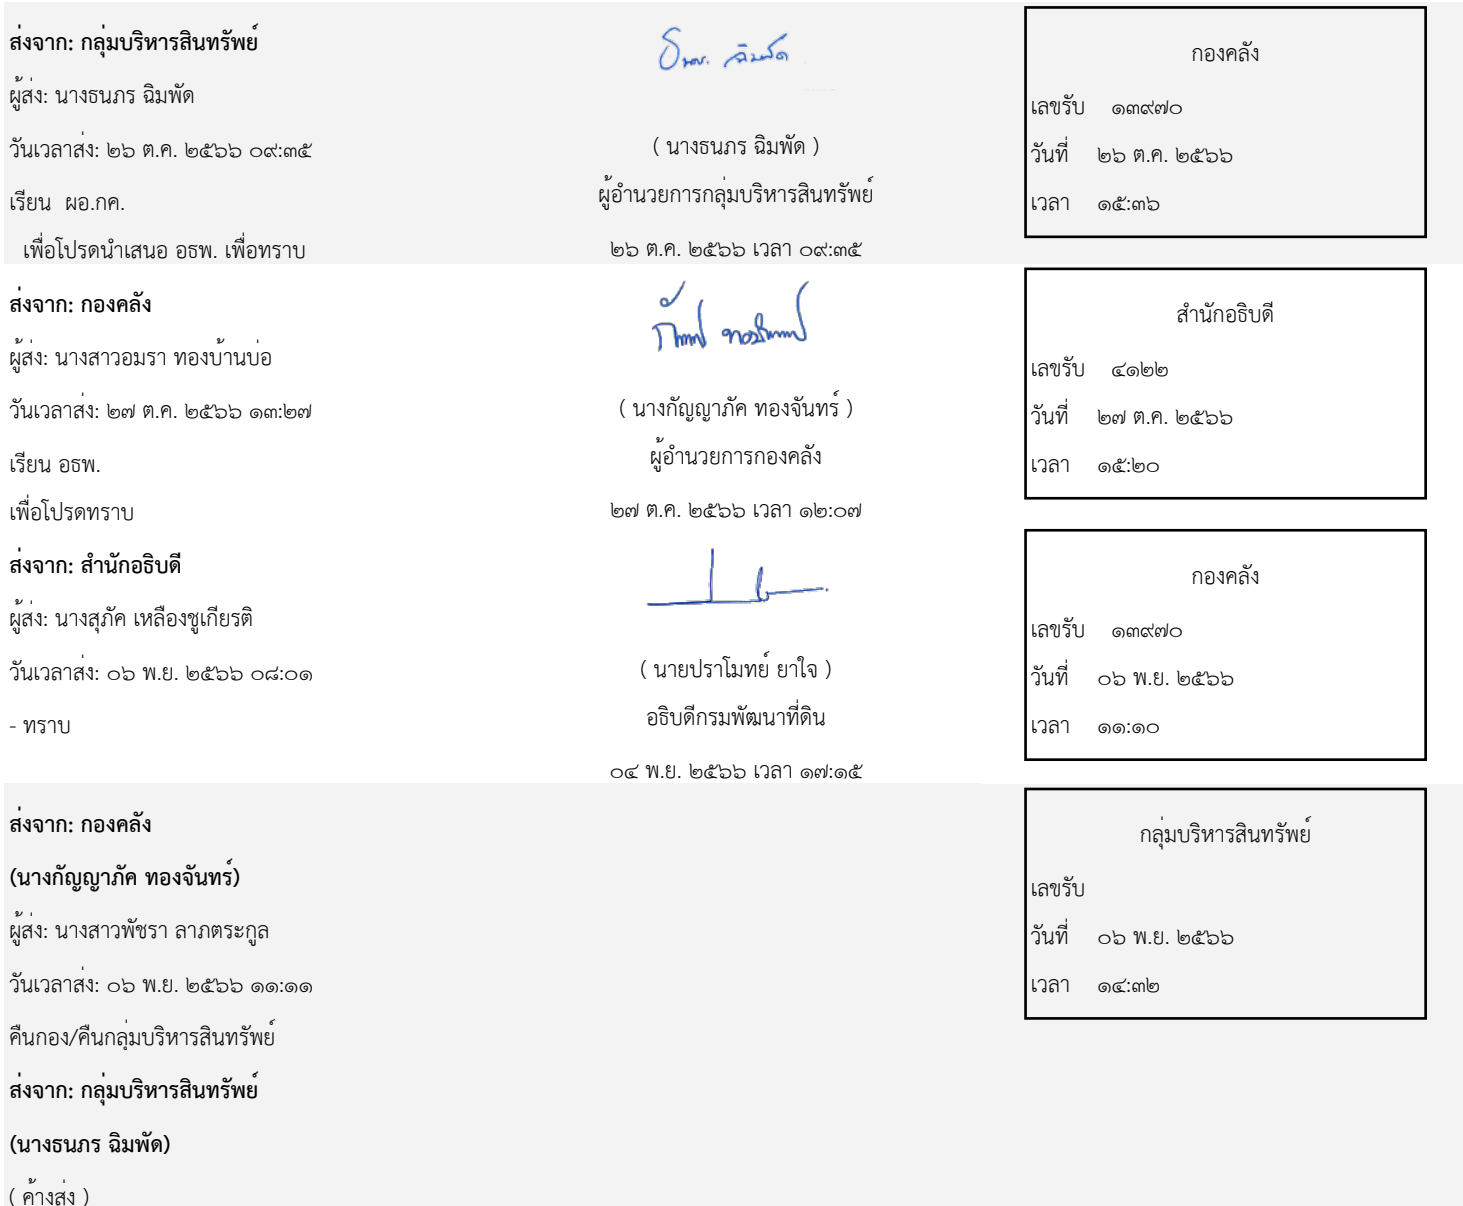 ส่งจาก: กลุ่มบริหารสินทรัพย์
ผู้ส่ง: นางธนภร ฉิมพัด
วันเวลาส่ง: ๒๖ ต.ค. ๒๕๖๖ ๐๙:๓๕
เรียน ผอ.กค.
เพื่อโปรดนำเสนอ อธพ. เพื่อทราบ
ธนภร ฉิมพัด
( นางธนภร ฉิมพัด )
ผู้อำนวยการกลุ่มบริหารสินทรัพย์
๒๖ ต.ค. ๒๕๖๖ เวลา ๐๙:๓๕
กองคลัง
เลขรับ ๑๓๙๗๐
วันที่ ๒๖ ต.ค. ๒๕๖๖
เวลา ๑๕:๓๖
ส่งจาก: กองคลัง
ผู้ส่ง: นางสาวอมรา ทองบ้านบ่อ
วันเวลาส่ง: ๒๗ ต.ค. ๒๕๖๖ ๑๓:๒๗
เรียน อธพ.
เพื่อโปรดทราบ
( นางกัญญาภัค ทองจันทร์ )
ผู้อำนวยการกองคลัง
๒๗ ต.ค. ๒๕๖๖ เวลา ๑๒:๐๗
สำนักอธิบดี
เลขรับ ๔๑๒๒
วันที่ ๒๗ ต.ค. ๒๕๖๖
เวลา ๑๕:๒๐
ส่งจาก: สำนักอธิบดี
ผู้ส่ง: นางสุภัค เหลืองชูเกียรติ
วันเวลาส่ง: ๐๖ พ.ย. ๒๕๖๖ ๐๘:๐๑
- ทราบ
( นายปราโมทย์ ยาใจ )
อธิบดีกรมพัฒนาที่ดิน
๐๔ พ.ย. ๒๕๖๖ เวลา ๑๗:๑๕
กองคลัง
เลขรับ ๑๓๙๗๐
วันที่ ๐๖ พ.ย. ๒๕๖๖
เวลา ๑๑:๑๐
ส่งจาก: กองคลัง
(นางกัญญาภัค ทองจันทร์)
ผู้ส่ง: นางสาวพัชรา ลาภตระกูล
วันเวลาส่ง: ๐๖ พ.ย. ๒๕๖๖ ๑๑:๑๑
คืนกอง/คืนกลุ่มบริหารสินทรัพย์
กลุ่มบริหารสินทรัพย์
เลขรับ
วันที่ ๐๖ พ.ย. ๒๕๖๖
เวลา ๑๔:๓๒
ส่งจาก: กลุ่มบริหารสินทรัพย์
(นางธนภร ฉิมพัด)
( ค้างส่ง )